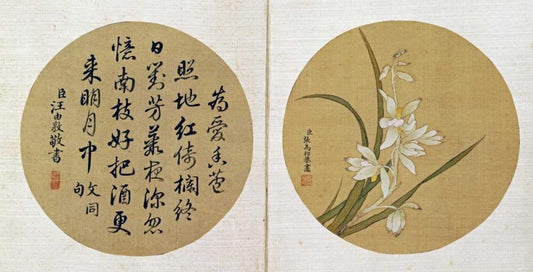 為愛香苞
照地紅倚欄終
日對芳叢夜深忽
憶南枝好把酒更
來明月中
文同
句
臣汪由敦敬書
臣張為邦恭畫